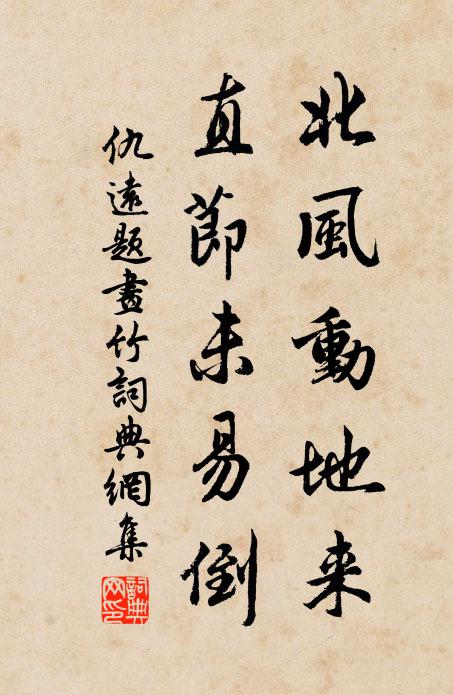 北風動地来
直節未易倒
仇遠題畫竹詞典網集
詞典
网印